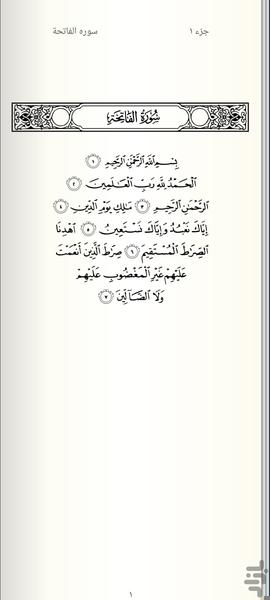 جزء ١
سوره الفاتحة
سُورَةُ الفَاتِحَةِ
بِسْمِ اللَّهِ الرَّحْمَٰنِ الرَّحِيمِ ١
الْحَمْدُ لِلَّهِ رَبِّ الْعَالَمِينَ ٢
الرَّحْمَٰنِ الرَّحِيمِ ٣ مَالِكِ يَوْمِ الدِّينِ ٤
إِيَّاكَ نَعْبُدُ وَإِيَّاكَ نَسْتَعِينُ ٥ اهْدِنَا
الصِّرَاطَ الْمُسْتَقِيمَ ٦ صِرَاطَ الَّذِينَ أَنْعَمْتَ
عَلَيْهِمْ غَيْرِ الْمَغْضُوبِ عَلَيْهِمْ
وَلَا الضَّالِّينَ ٧
١
بازار